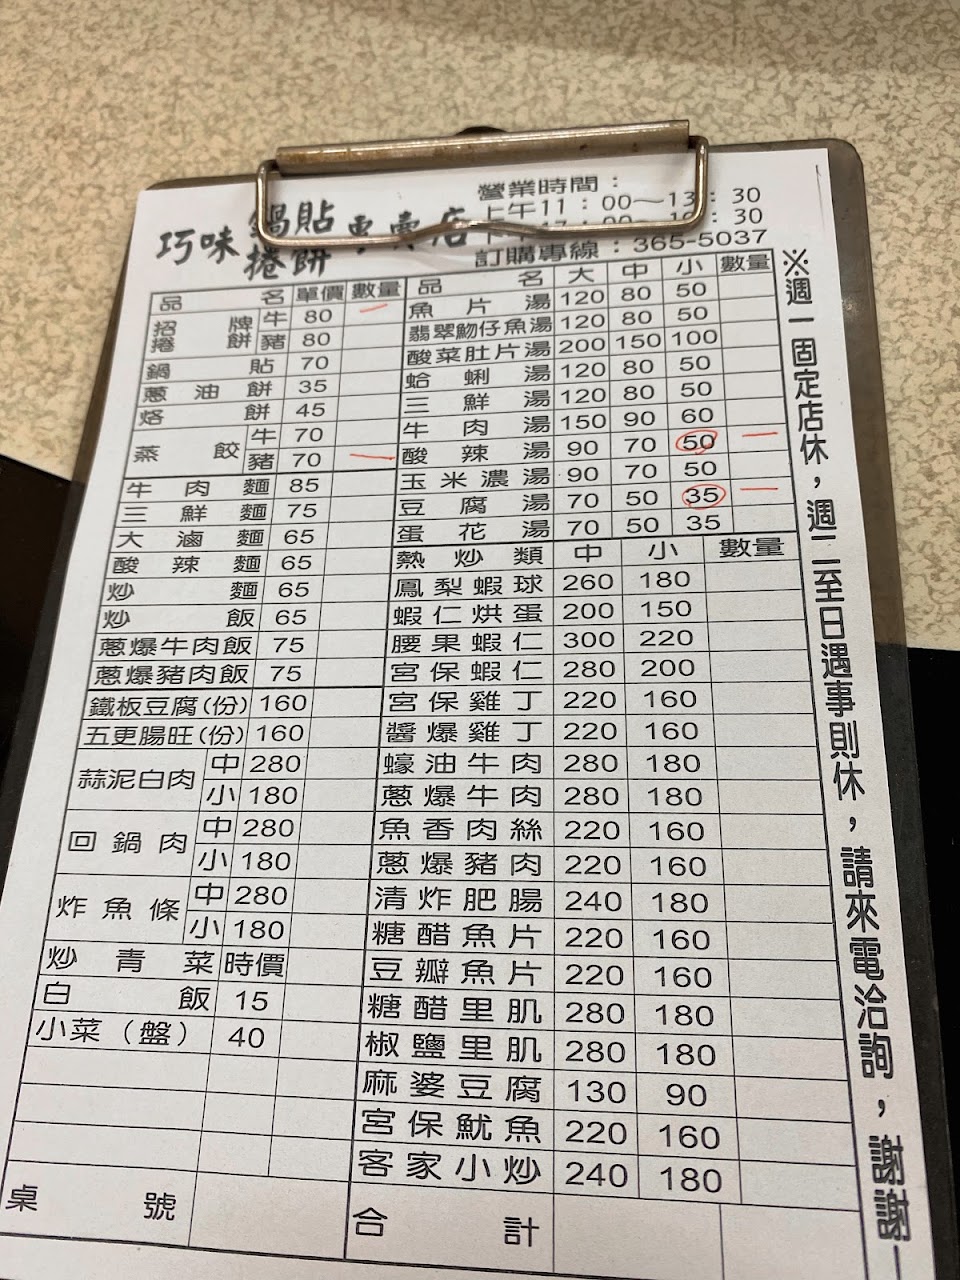 巧味 鍋貼 捲餅 專賣店
營業時間：
上午11：00～13：30
：30
訂購專線：365-5037
品名 單價 數量
招牌捲餅 牛 80 一
豬 80
鍋貼 70
蔥油餅 35
烙餅 45
蒸餃 牛 70
豬 70 一
牛肉麵 85
三鮮麵 75
大滷麵 65
酸辣麵 65
炒麵 65
炒飯 65
蔥爆牛肉飯 75
蔥爆豬肉飯 75
鐵板豆腐(份) 160
五更腸旺(份) 160
蒜泥白肉 中 280
小 180
回鍋肉 中 280
小 180
炸魚條 中 280
小 180
炒青菜 時價
白飯 15
小菜（盤） 40
桌號
品名 大 中 小 數量
魚片湯 120 80 50
翡翠魩仔魚湯 120 80 50
酸菜肚片湯 200 150 100
蛤蜊湯 120 80 50
三鮮湯 120 80 50
牛肉湯 150 90 60
酸辣湯 90 70 50 一
玉米濃湯 90 70 50
豆腐湯 70 50 35 一
蛋花湯 70 50 35
熱炒類 中 小 數量
鳳梨蝦球 260 180
蝦仁烘蛋 200 150
腰果蝦仁 300 220
宮保蝦仁 280 200
宮保雞丁 220 160
醬爆雞丁 220 160
蠔油牛肉 280 180
蔥爆牛肉 280 180
魚香肉絲 220 160
蔥爆豬肉 220 160
清炸肥腸 240 180
糖醋魚片 220 160
豆瓣魚片 220 160
糖醋里肌 280 180
椒鹽里肌 280 180
麻婆豆腐 130 90
宮保魷魚 220 160
客家小炒 240 180
合計
※週一固定店休，週二至日遇事則休，請來電洽詢，謝謝